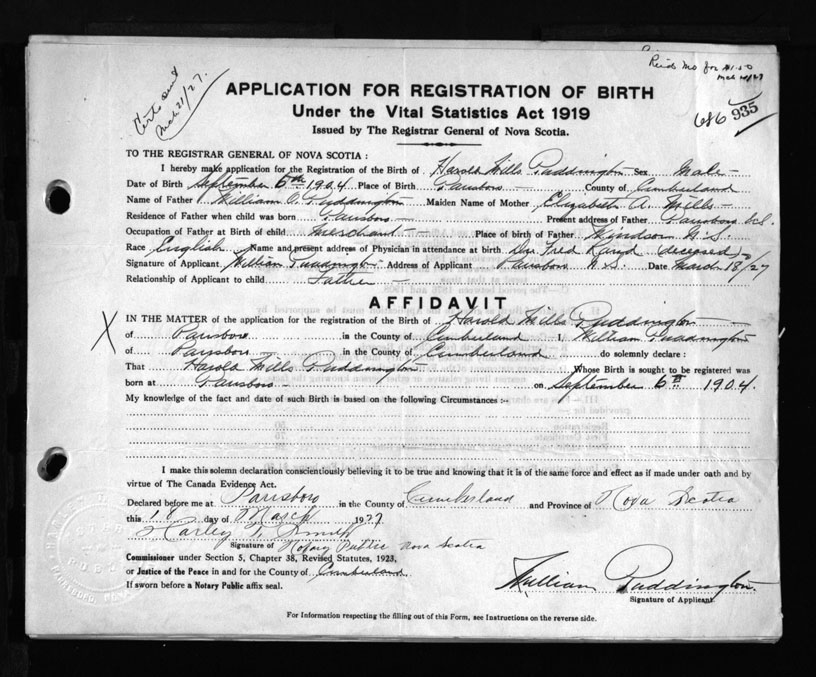 Cert sent
Mch 21/27.
Mch 21/27
686 935
APPLICATION FOR REGISTRATION OF BIRTH
Under the Vital Statistics Act 1919
Issued by The Registrar General of Nova Scotia.
TO THE REGISTRAR GENERAL OF NOVA SCOTIA :
I hereby make application for the Registration of the Birth of Harold Mills Puddington Sex Male
Date of Birth September 6th 1904 Place of Birth Parrsboro County of Cumberland
Name of Father William C. Puddington Maiden Name of Mother Elizabeth A. Mills
Residence of Father when child was born Parrsboro Present address of Father Parrsboro N.S.
Occupation of Father at Birth of child Merchant Place of Birth of Father Windsor N.S.
Race English Name and present address of Physician in attendance at birth Dr. Fred Rand (deceased)
Signature of Applicant William Puddington Address of Applicant Parrsboro N.S. Date March 18/27
Relationship of Applicant to child Father
AFFIDAVIT
X IN THE MATTER of the application for the registration of the Birth of Harold Mills Puddington
of Parrsboro in the County of Cumberland I, William Puddington
of Parrsboro in the County of Cumberland do solemnly declare :
That Harold Mills Puddington Whose Birth is sought to be registered was
born at Parrsboro on September 6th 1904.
My knowledge of the fact and date of such Birth is based on the following Circumstances :-
I make this solemn declaration conscientiously believing it to be true and knowing that it is of the same force and effect as if made under oath and by
virtue of The Canada Evidence Act.
Declared before me at Parrsboro in the County of Cumberland and Province of Nova Scotia
this 18 day of March 1927
Harley
Signature of Notary Public Nova Scotia
Commissioner under Section 5, Chapter 38, Revised Statutes, 1923,
or Justice of the Peace in and for the County of Cumberland
If sworn before a Notary Public affix seal.
William Puddington
Signature of Applicant.
For Information respecting the filling out of this Form, see Instructions on the reverse side.